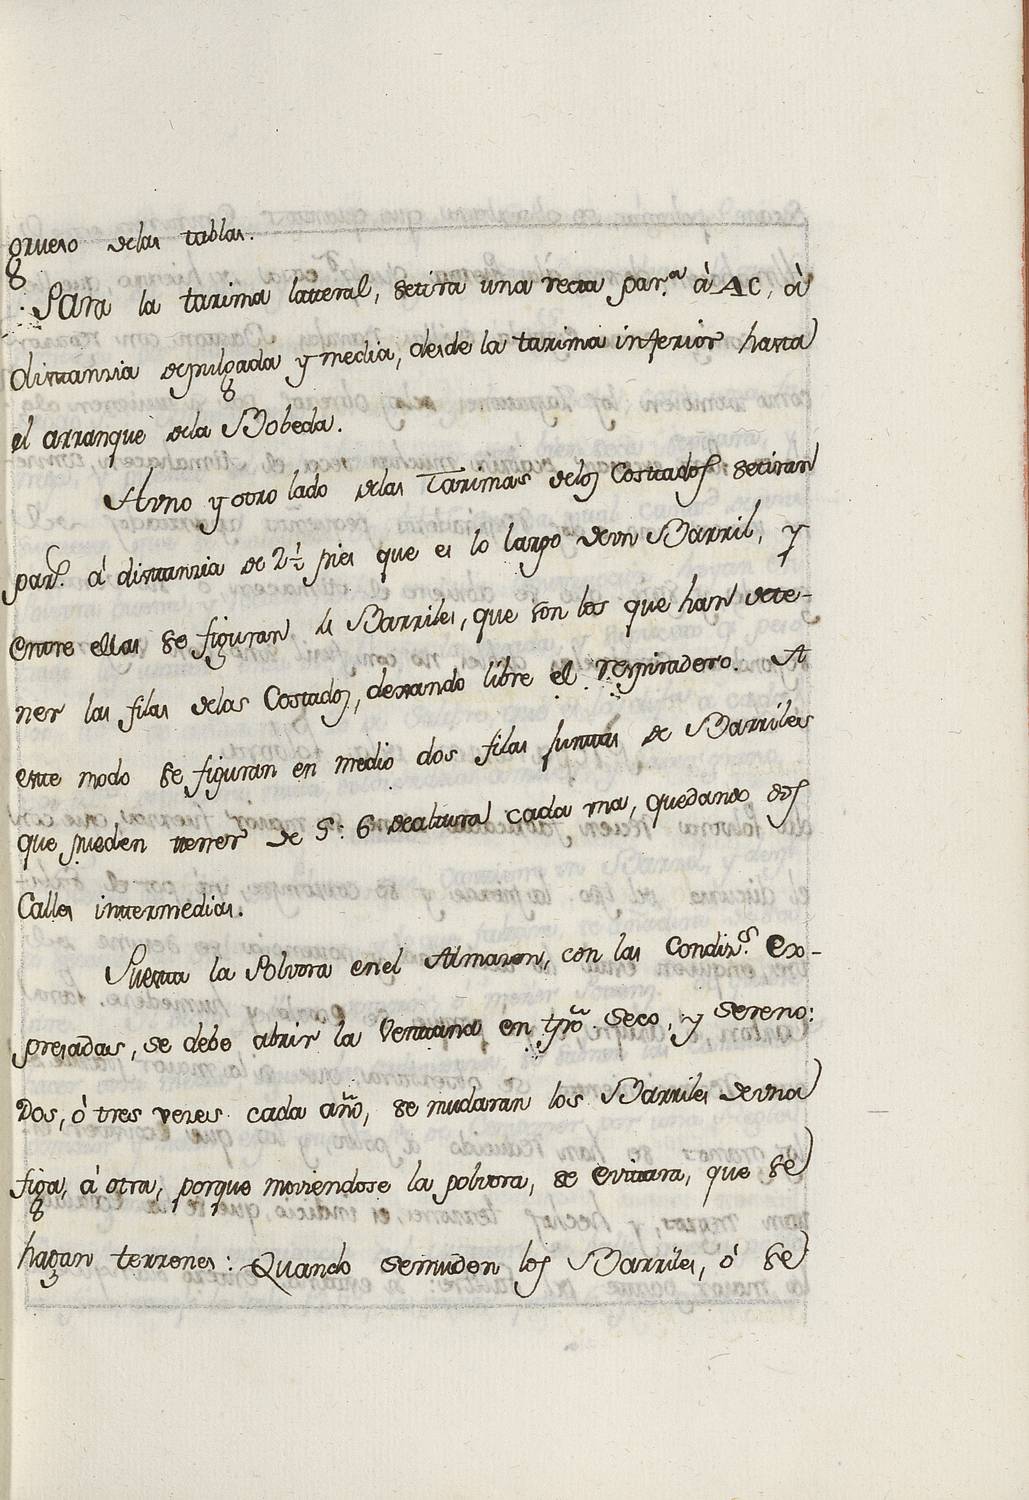 grueso delas tablas.
Para la tarima latteral, setira una recta par.ª à AC, à
distanzia depulgada y media, desde la tarima inferior hasta
el arranque dela Bobeda.
Auno y otro lado delas Tarimas delos Costtados setiran
par.s à distanzia de 2½ pies que es lo largo deun Barril, y
entre ellas se figuran 4 Barriles, que son los que han dete-
ner las filas delas Costados, dexando libre el respiradero. A
este modo se figuran en medio dos filas juntas de Barriles
que pueden tener de 5: 6 dealtura cada una, quedando dos
Calles intermedias.
Puesta la Polvora enel Almazen, con las Condiz.s Ex-
presadas, se debe abrir la Ventana en tpõ seco, y sereno:
Dos, ò tres vezes cada año, se mudaran los Barriles deuna
figa, à otra, porque moviendose la polvora, se evitara, que se
hagan terrones: Quando semuden los Barriles, ò se